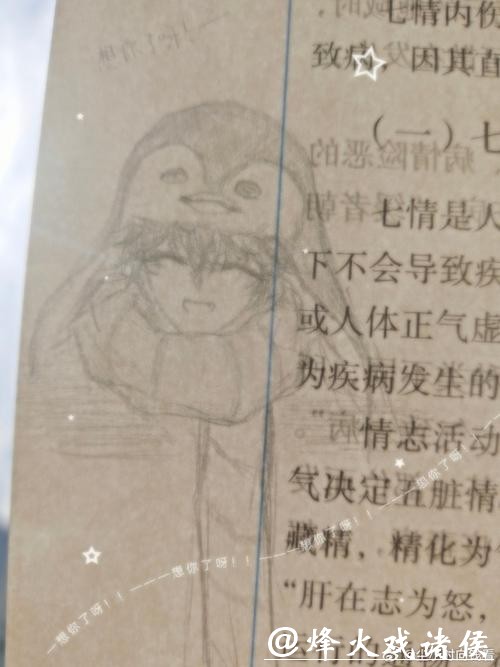 想你了呀！！——
七情内伤
致病，因其直
（一）七
七情是人
下不会导致疾
或人体正气虚
为疾病发生的
情志活动
气决定五脏情
藏精，精化为
“肝在志为怒，
—想你了呀！！————想你了呀！！————想你了呀！！————想你了呀！！—
@烽火戏诸侯